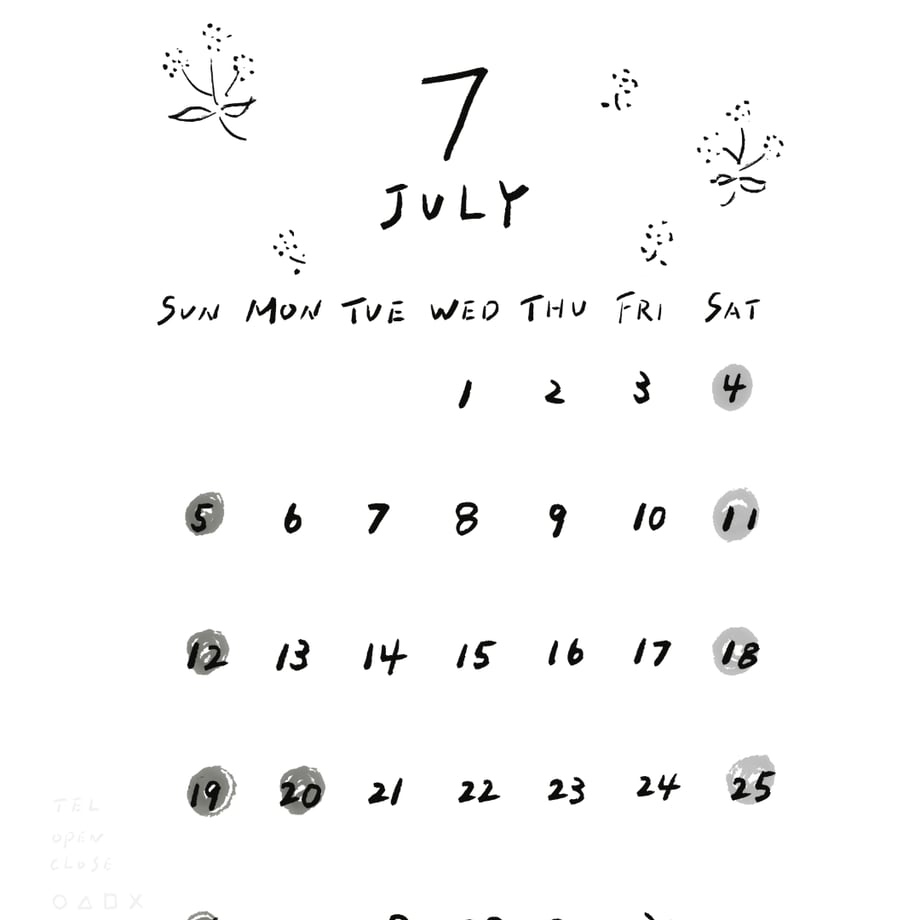 7
JULY
SUN MON TUE WED THU FRI SAT
1 2 3 4
5 6 7 8 9 10 11
12 13 14 15 16 17 18
19 20 21 22 23 24 25
TEL
OPEN
CLOSE
○△□×